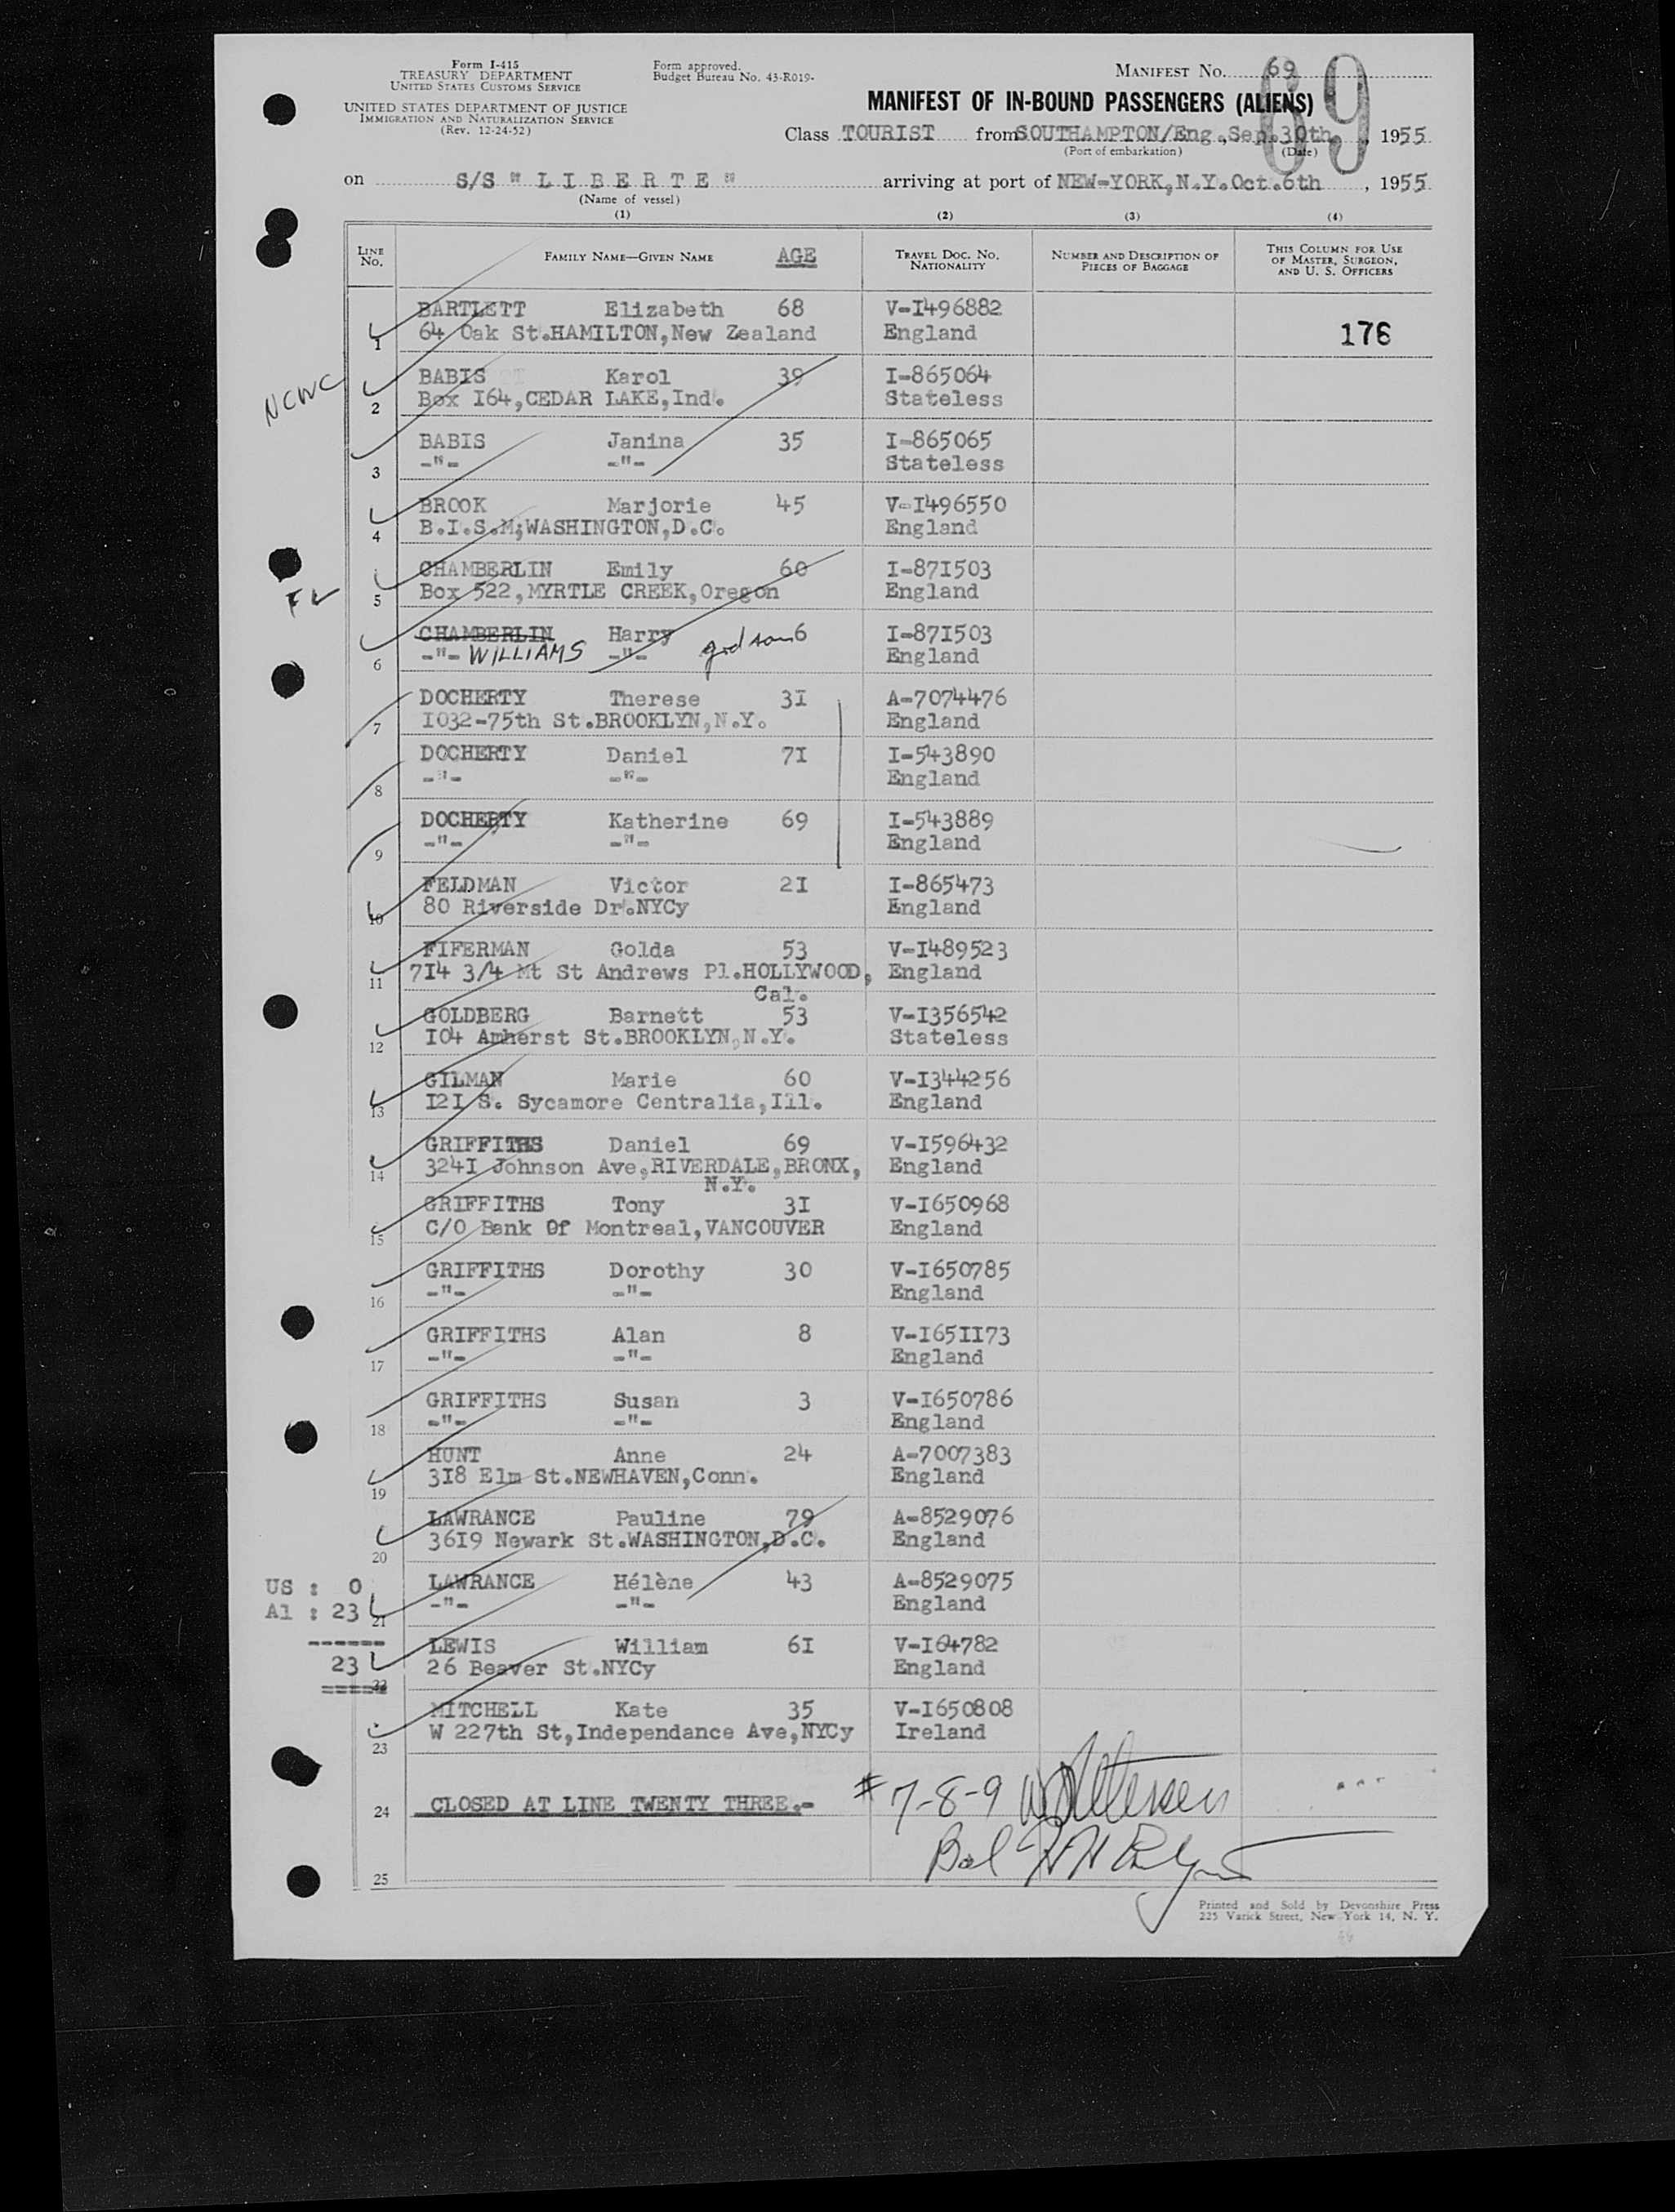 Form I-415
TREASURY DEPARTMENT
UNITED STATES CUSTOMS SERVICE
UNITED STATES DEPARTMENT OF JUSTICE
IMMIGRATION AND NATURALIZATION SERVICE
(Rev. 12-24-52)
Form approved.
Budget Bureau No. 43-R019-
MANIFEST No. 69
69
MANIFEST OF IN-BOUND PASSENGERS (ALIENS)
Class TOURIST from SOUTHAMPTON/Eng.,Sep.30th, 1955
(Port of embarkation) (Date)
on S/S " L I B E R T E " arriving at port of NEW-YORK,N.Y.Oct.6th, 1955
(Name of vessel)
(1) (2) (3) (4)
LINE No. FAMILY NAME—GIVEN NAME AGE TRAVEL DOC. NO. NATIONALITY NUMBER AND DESCRIPTION OF PIECES OF BAGGAGE THIS COLUMN FOR USE OF MASTER, SURGEON, AND U. S. OFFICERS
BARTLETT Elizabeth 68 V-I496882
1 64 Oak St.HAMILTON,New Zealand England 176
NCWC
BABIS Karol 39 I-865064
2 Box I64,CEDAR LAKE,Ind. Stateless
BABIS Janina 35 I-865065
3 -"- -"- Stateless
BROOK Marjorie 45 V-I496550
4 B.I.S.M;WASHINGTON,D.C. England
CHAMBERLIN Emily 60 I-87I503
5 Box 522,MYRTLE CREEK,Oregon England
CHAMBERLIN Harry godson 6 I-87I503
6 -"- WILLIAMS -"- England
DOCHERTY Therese 3I A-7074476
7 I032-75th St.BROOKLYN,N.Y. England
DOCHERTY Daniel 7I I-543890
8 -"- -"- England
DOCHERTY Katherine 69 I-543889
9 -"- -"- England
FELDMAN Victor 2I I-865473
10 80 Riverside Dr.NYCy England
FIFERMAN Golda 53 V-I489523
11 7I4 3/4 Mt St Andrews Pl.HOLLYWOOD, England
Cal.
GOLDBERG Barnett 53 V-I356542
12 I04 Amherst St.BROOKLYN,N.Y. Stateless
GILMAN Marie 60 V-I344256
13 I2I S. Sycamore Centralia,Ill. England
GRIFFITHS Daniel 69 V-I596432
14 324I Johnson Ave,RIVERDALE,BRONX, England
N.Y.
GRIFFITHS Tony 3I V-I650968
15 C/O Bank Of Montreal,VANCOUVER England
GRIFFITHS Dorothy 30 V-I650785
16 -"- -"- England
GRIFFITHS Alan 8 V-I65II73
17 -"- -"- England
GRIFFITHS Susan 3 V-I650786
18 -"- -"- England
HUNT Anne 24 A-7007383
19 3I8 Elm St.NEWHAVEN,Conn. England
LAWRANCE Pauline 79 A-8529076
20 36I9 Newark St.WASHINGTON,D.C. England
US : 0 LAWRANCE Hélène 43 A-8529075
Al : 23 21 -"- -"- England
------
LEWIS William 6I V-I64782
23 26 Beaver St.NYCy England
===== 22
MITCHELL Kate 35 V-I650808
23 W 227th St,Independance Ave,NYCy Ireland
24 CLOSED AT LINE TWENTY THREE.- # 7-8-9
Bal
25
Printed and Sold by Devonshire Press
225 Varick Street, New York 14, N. Y.